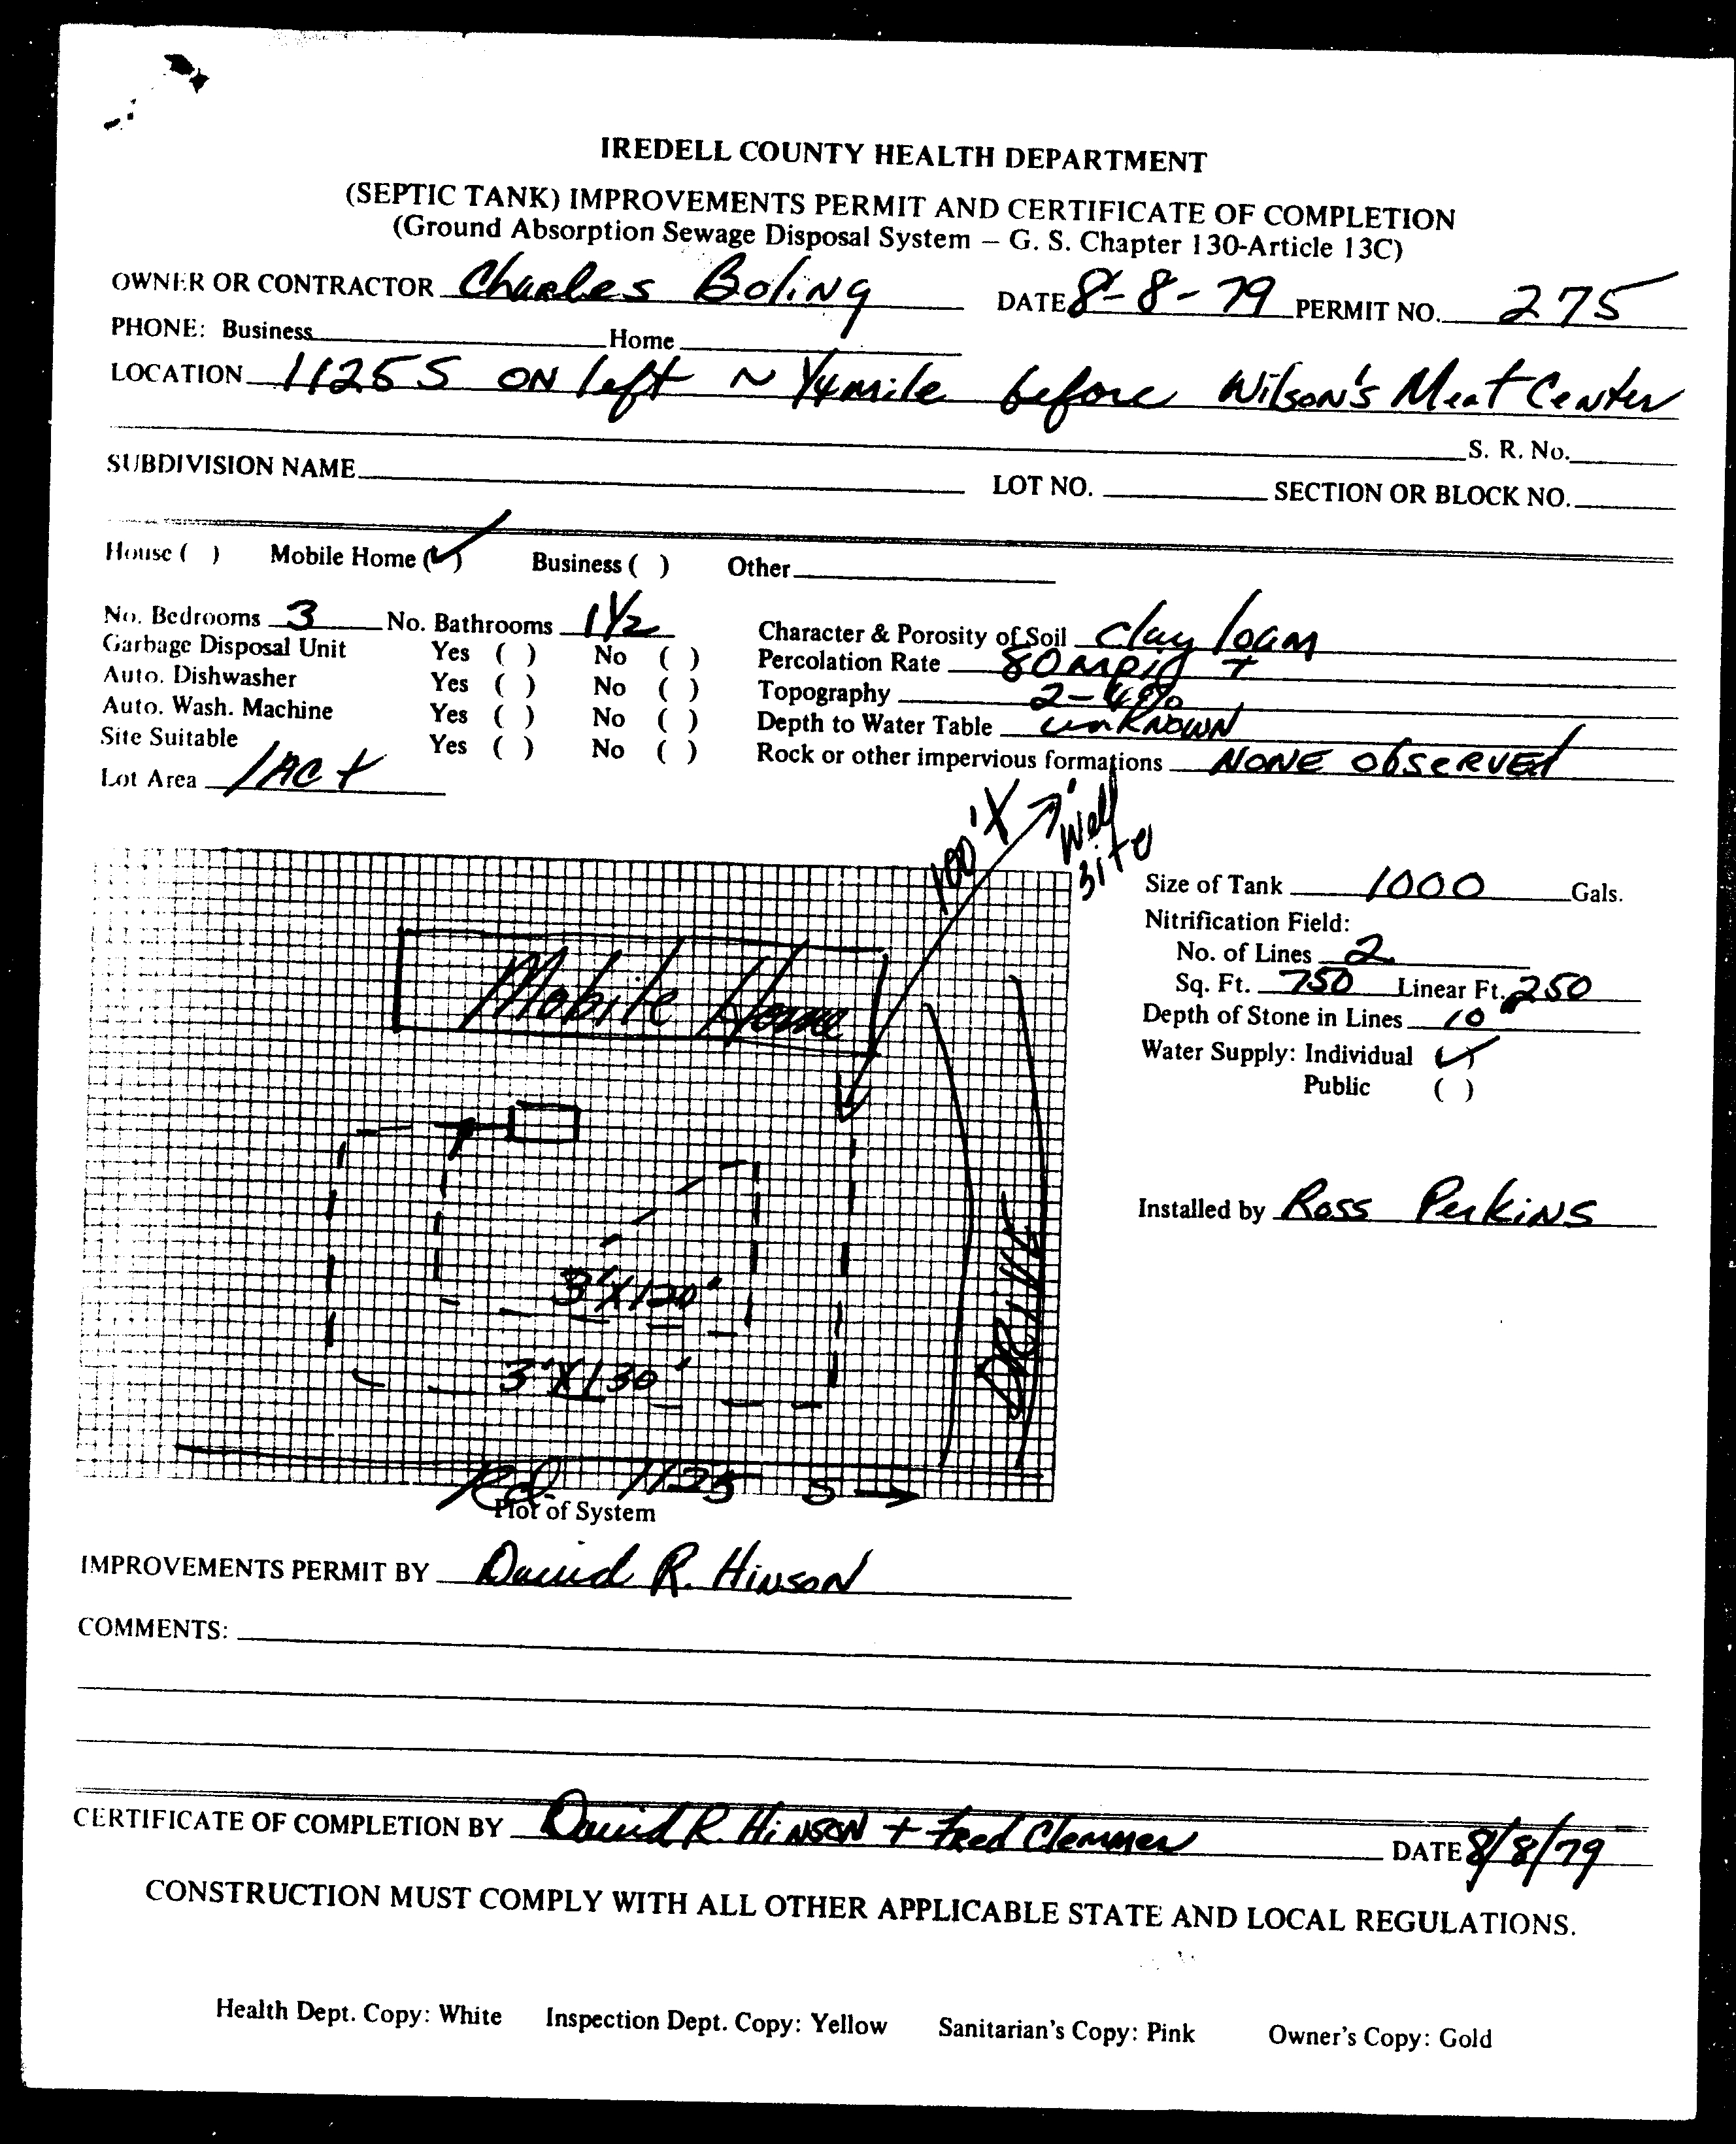 IREDELL COUNTY HEALTH DEPARTMENT
(SEPTIC TANK) IMPROVEMENTS PERMIT AND CERTIFICATE OF COMPLETION
(Ground Absorption Sewage Disposal System – G. S. Chapter 130-Article 13C)
OWNER OR CONTRACTOR Charles Boling DATE 8-8-79 PERMIT NO. 275
PHONE: Business Home
LOCATION 1125 S ON left ~ 1/4 mile before Wilson's Meat Center
S. R. No.
SUBDIVISION NAME LOT NO. SECTION OR BLOCK NO.
House ( ) Mobile Home (✓) Business ( ) Other
No. Bedrooms 3 No. Bathrooms 1 1/2 Character & Porosity of Soil clay loam
Garbage Disposal Unit Yes ( ) No ( ) Percolation Rate 80 mpi +
Auto. Dishwasher Yes ( ) No ( ) Topography 2-4%
Auto. Wash. Machine Yes ( ) No ( ) Depth to Water Table unKNOWN
Site Suitable Yes ( ) No ( ) Rock or other impervious formations NONE observed
Lot Area 1 AC +
100'+ Well site
Mobile Home
3'X120'
3'X130'
DRIVE
Rd 1125 S →
Plot of System
Size of Tank 1000 Gals.
Nitrification Field:
No. of Lines 2
Sq. Ft. 750 Linear Ft. 250
Depth of Stone in Lines 10"
Water Supply: Individual (✓)
Public ( )
Installed by Ross Perkins
IMPROVEMENTS PERMIT BY David R. Hinson
COMMENTS:
CERTIFICATE OF COMPLETION BY David R. Hinson + Fred Clemmer DATE 8/8/79
CONSTRUCTION MUST COMPLY WITH ALL OTHER APPLICABLE STATE AND LOCAL REGULATIONS.
Health Dept. Copy: White Inspection Dept. Copy: Yellow Sanitarian's Copy: Pink Owner's Copy: Gold